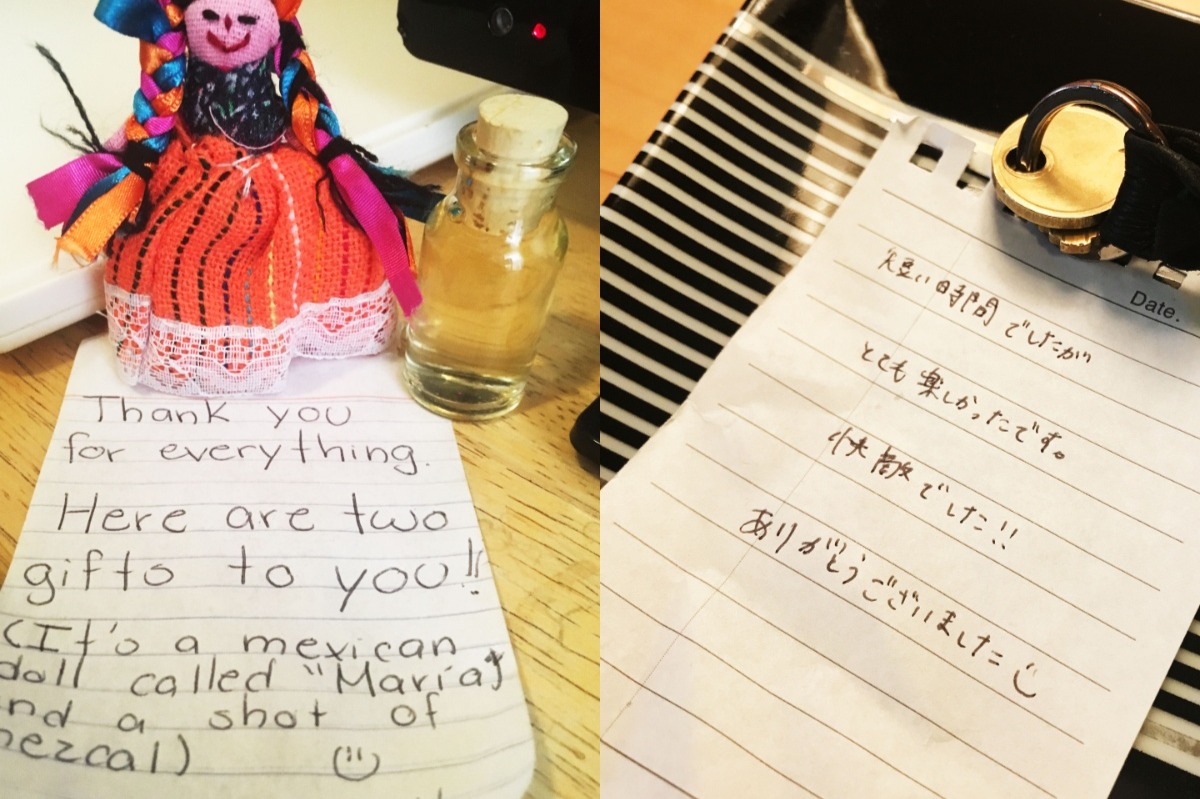 Thank you
for everything.
Here are two
gifts to you!!
(It's a mexican
doll called "María"
and a shot of
mezcal) :)
Date.
短い時間でしたが
とても楽しかったです。
快適でした!!
ありがとうございました :)